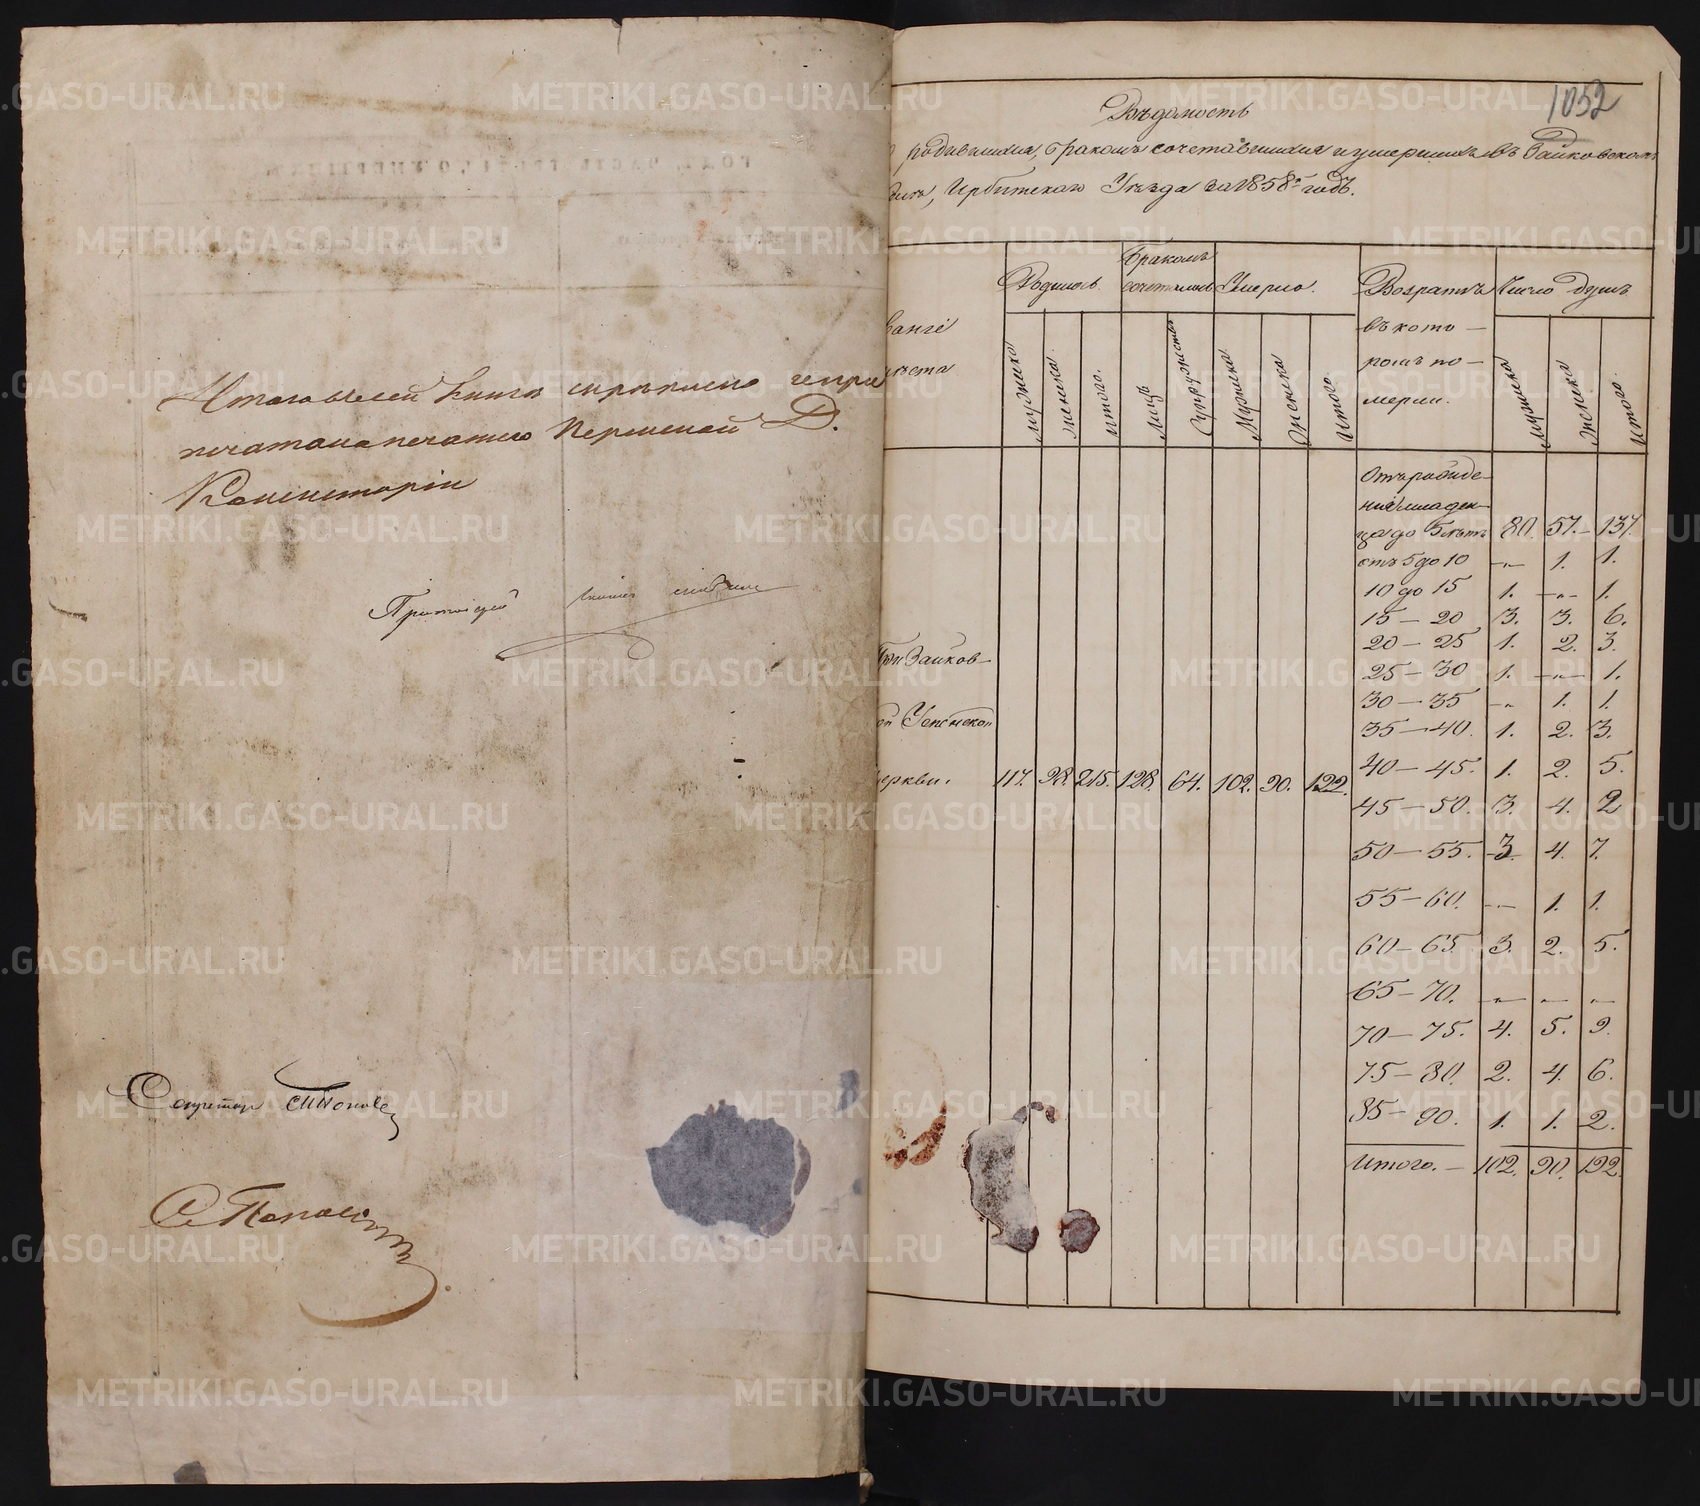 Итого въ сей книгѣ скрѣплено и при
печатана печатью Пермской Д.
Консисторіи
Секретарь Поповъ
С. Поповъ
1052
Вѣдомость
родившихся, бракомъ сочетавшихся и умершихъ въ Зайковскомъ
Ирбитскаго Уѣзда за 1858й годъ.
Родилось. Бракомъ сочетались Умерло. Возрастъ въ кото-ромъ по-мерли. Число душъ
мужеска женска итого. Лицъ Супружествъ Мужеска Женска Итого. мужеска женска итого.
Зайков-
Успенской
церкви. 117. 98. 215. 128. 64. 102. 90. 192.
Отъ рожде-
нія младен-
ца до 5 лѣтъ 80. 57. 137.
отъ 5 до 10 -„- 1. 1.
10 до 15 1. -„- 1.
15 — 20 3. 3. 6.
20 — 25 1. 2. 3.
25 — 30 1. -„- 1.
30 — 35 -„- 1. 1.
35 — 40. 1. 2. 3.
40 — 45. 1. 2. 5.
45 — 50. 3. 4. 2
50 — 55. 3. 4. 7.
55 — 60. -„- 1. 1.
60 — 65. 3. 2. 5.
65 — 70. -„- -„- -„-
70 — 75. 4. 5. 9.
75 — 80. 2. 4. 6.
85 — 90. 1. 1. 2.
Итого. — 102. 90. 192.
METRIKI.GASO-URAL.RU